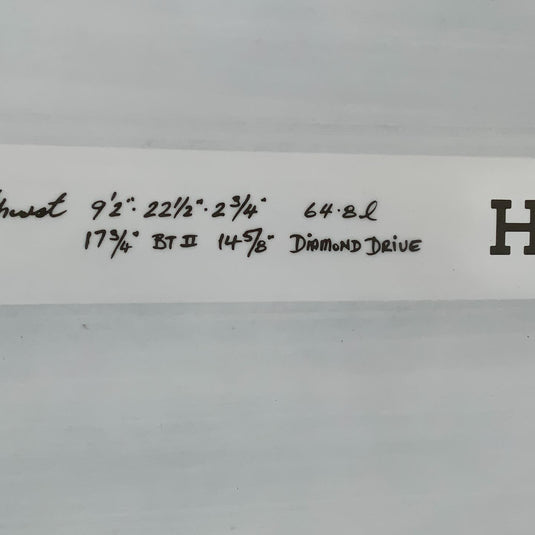 9'2". 22½". 2¾" 64.8l H
17¾" BT II 14⅝" DIAMOND DRIVE